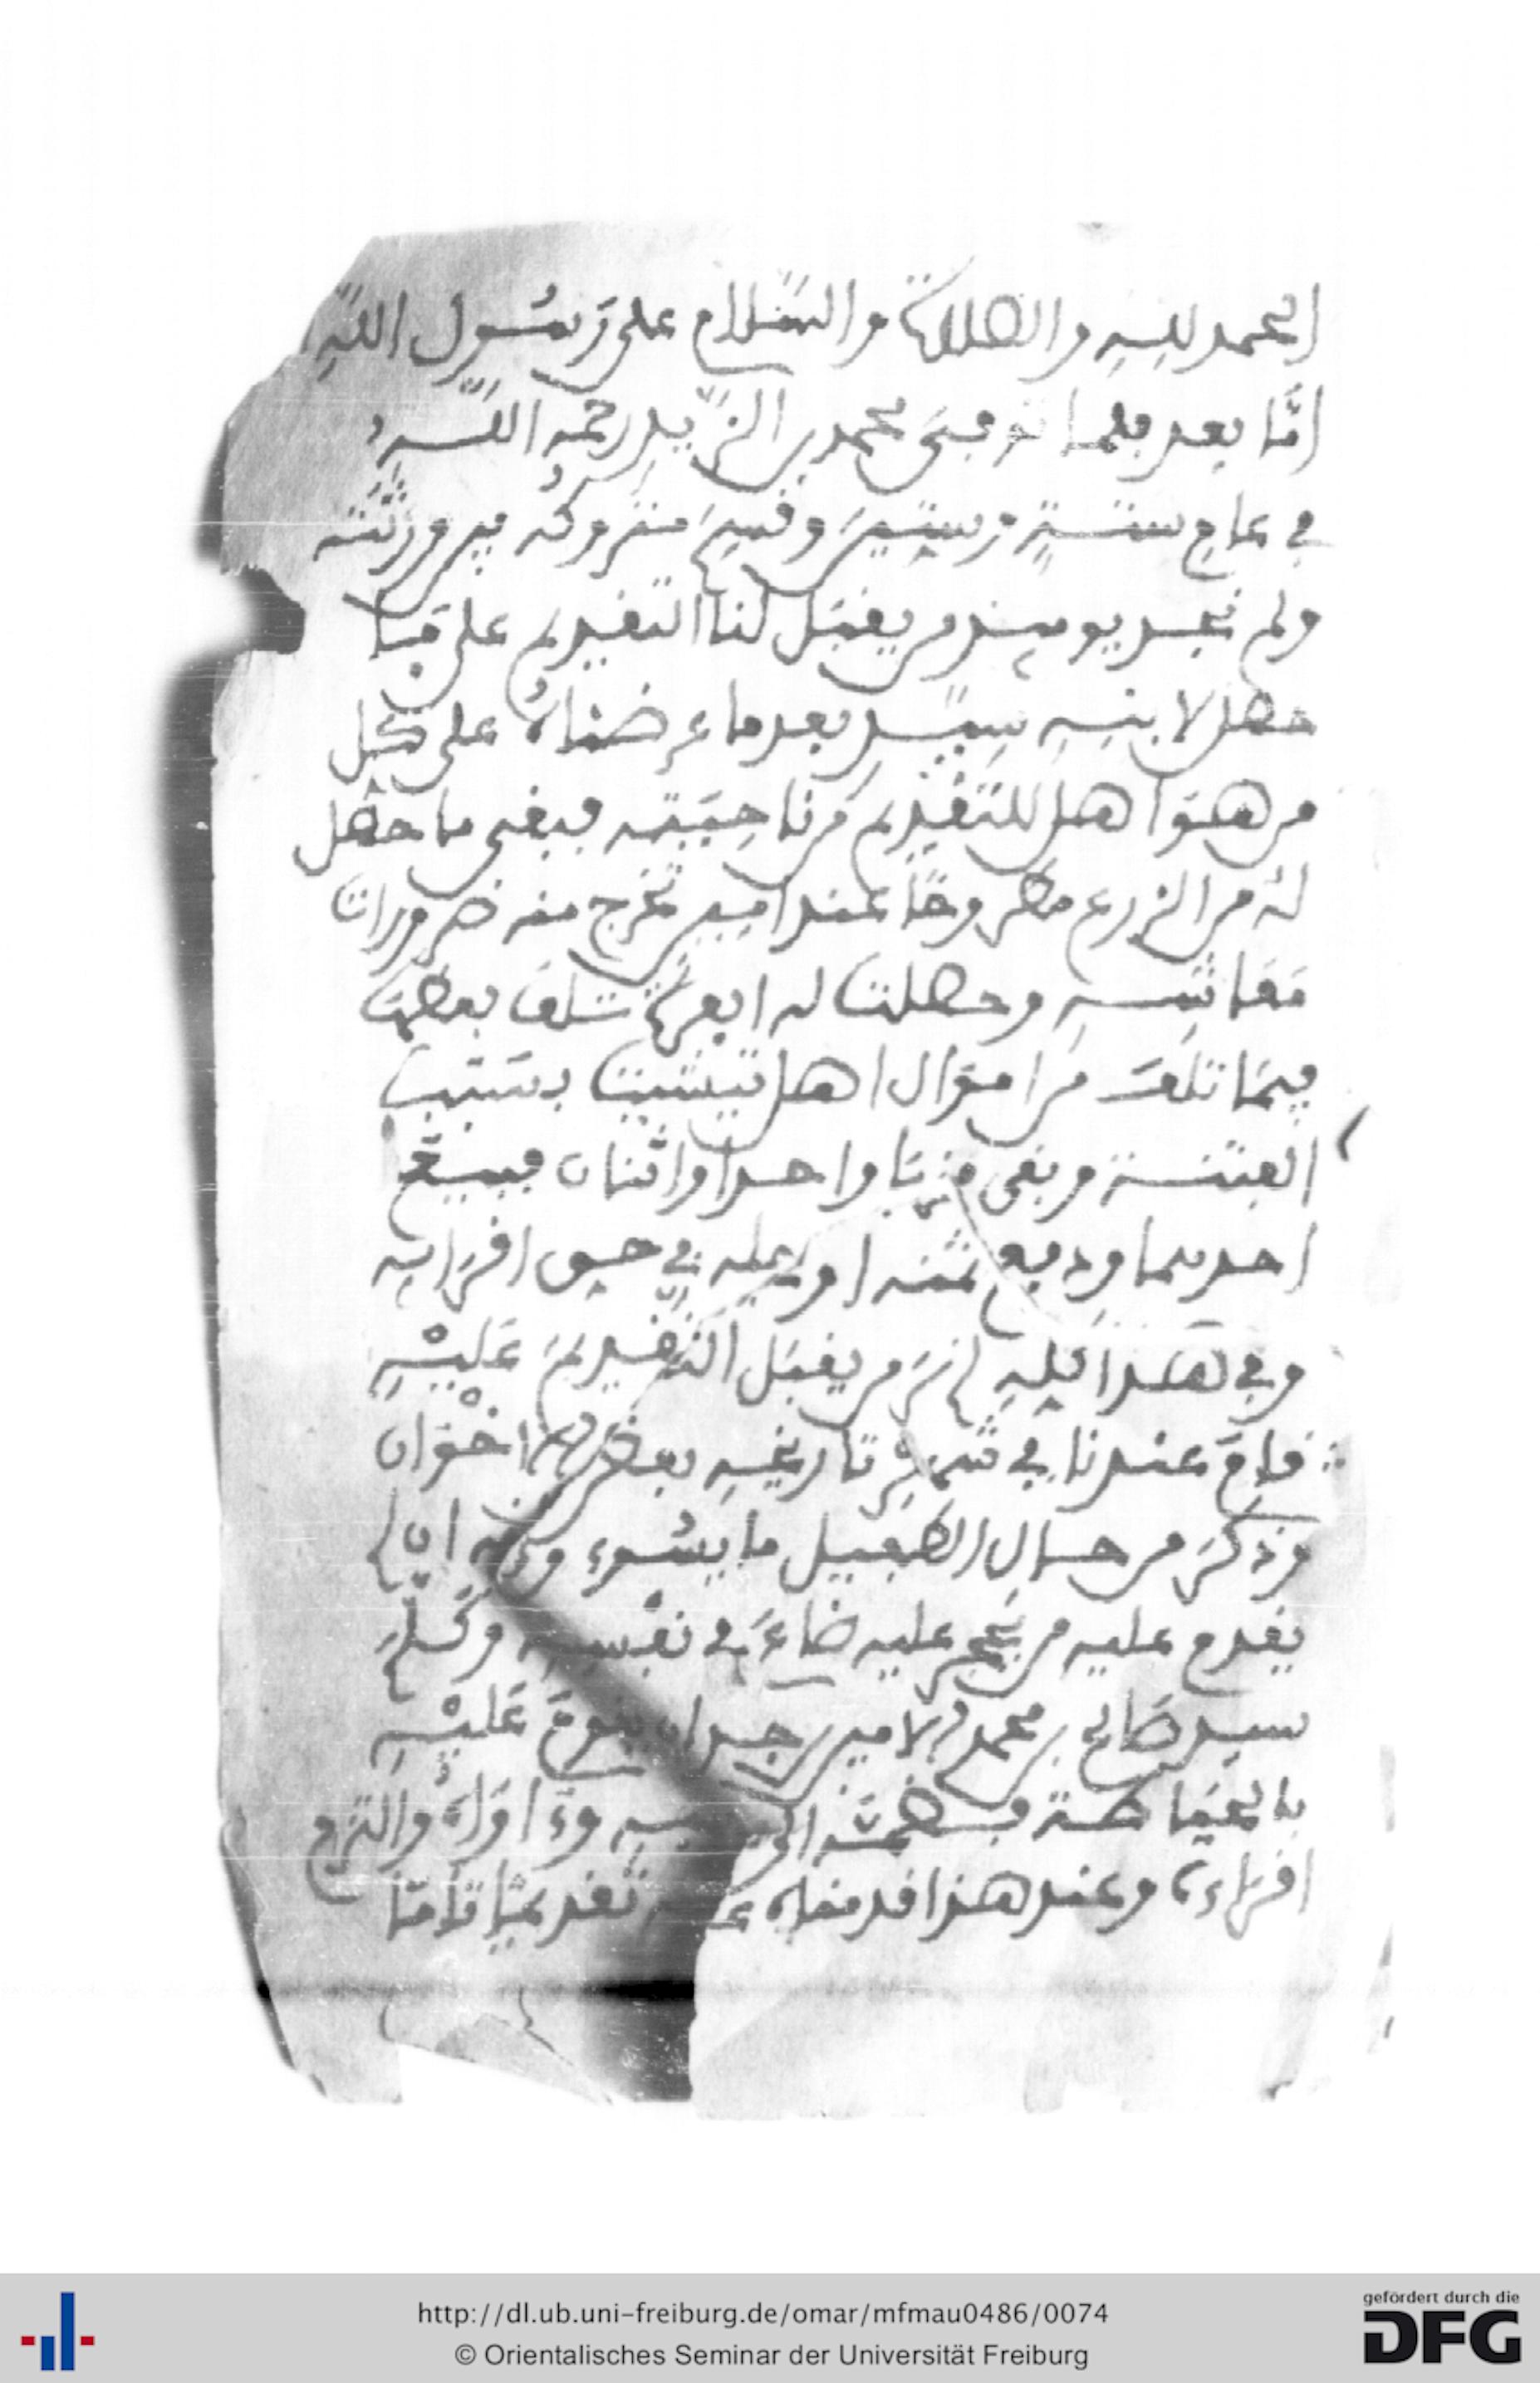 الحمد للهِ والصلاة والسَّلام على رَسُول اللهِ
امَّا بعد فلما توفيَ محمد بن الزَّبير رحمه اللهُ
في عام ستةٍ وستينَ وقسِمَ متروكُه بين ورثته
ولم نجد يومئذ من يقبَل لنا التقديم على مَا
حصل لابنهِ سِيدِ بعد ما عرضناهُ على كل
من هوَ اهل للتقديم مَن ناحيَته فبقى ما حصل
لهُ من الزرع مطروحًا عند امينٍ تخرج منه ضرورات
مَعَاشهِ وحصلت له ابعرة تلفَ بعضها
فيمَا تلفَ من اموَال اهل تيشيت بسَبَب
الفتنة وبقى منهَا واحد او اثنان فبيع
احدهما ودفع ثمنه او كله في حق اقرانه
وفي هذا كلهِ لم نرَ من يقبَل التقديمَ عَليْهِ
فوقع عندنا في شهر تاريخهِ بعض اخْوَان
وذكرَ من حال الطفيل ما يسُوء وانه ان لم
يقدم عليه من يقوم عليه ضاعَ في نفْسهِ وكلمَ
سيد صَالح بن محمد الامين جدا ان يقومَ عَليْهِ
بالحيَاطة فضمهُ الى نفسهِ وءاوَاهُ والتزم
اقراءه وعند هذا قدمناه عليه تقديمًا تامًا
http://dl.ub.uni-freiburg.de/omar/mfmau0486/0074
© Orientalisches Seminar der Universität Freiburg
gefördert durch die
DFG